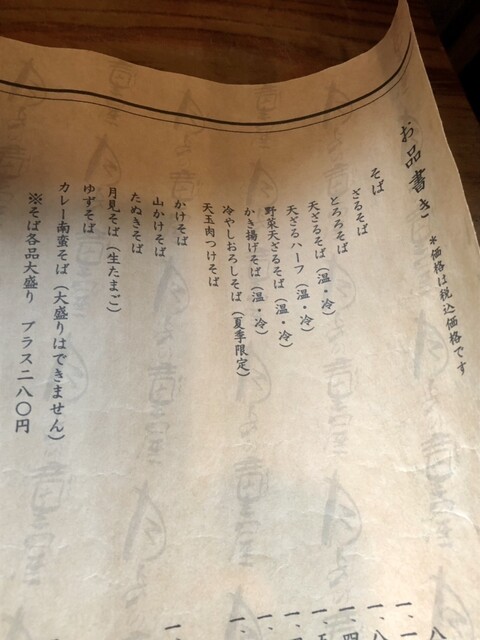 お品書き
＊価格は税込価格です
そば
ざるそば
とろろそば
天ざるそば（温・冷）
天ざるハーフ（温・冷）
野菜天ざるそば（温・冷）
かき揚げそば（温・冷）
冷やしおろしそば（夏季限定）
天玉肉つけそば
かけそば
山かけそば
たぬきそば
月見そば（生たまご）
ゆずそば
カレー南蛮そば（大盛りはできません）
※そば各品大盛り　プラス二八〇円